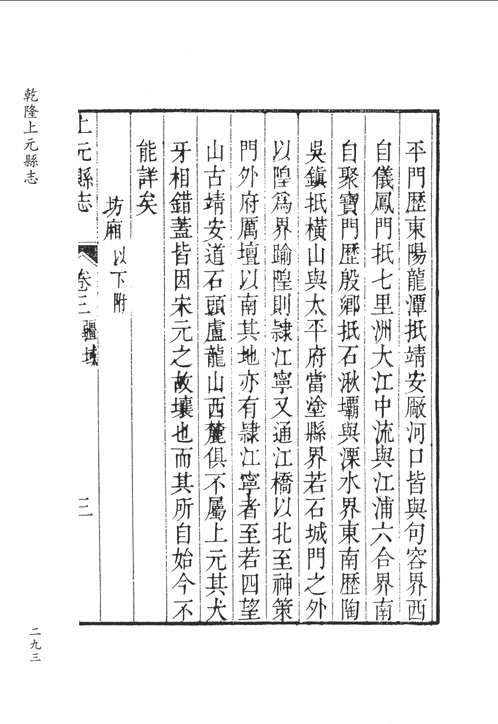 乾隆上元縣志
平門歷東陽龍潭抵靖安廠河口皆與句容界西
自儀鳳門抵七里洲大江中流與江浦六合界南
自聚寶門歷殷鄉抵石湫壩與溧水界東南歷陶
吳鎮抵橫山與太平府當塗縣界若石城門之外
以隍爲界踰隍則隷江寧又通江橋以北至神策
門外府厲壇以南其地亦有隷江寧者至若四望
山古靖安道石頭盧龍山西麓俱不屬上元其犬
牙相錯蓋皆因宋元之故壤也而其所自始今不
能詳矣
坊廂以下附
上元縣志 卷三疆域 三
二九三